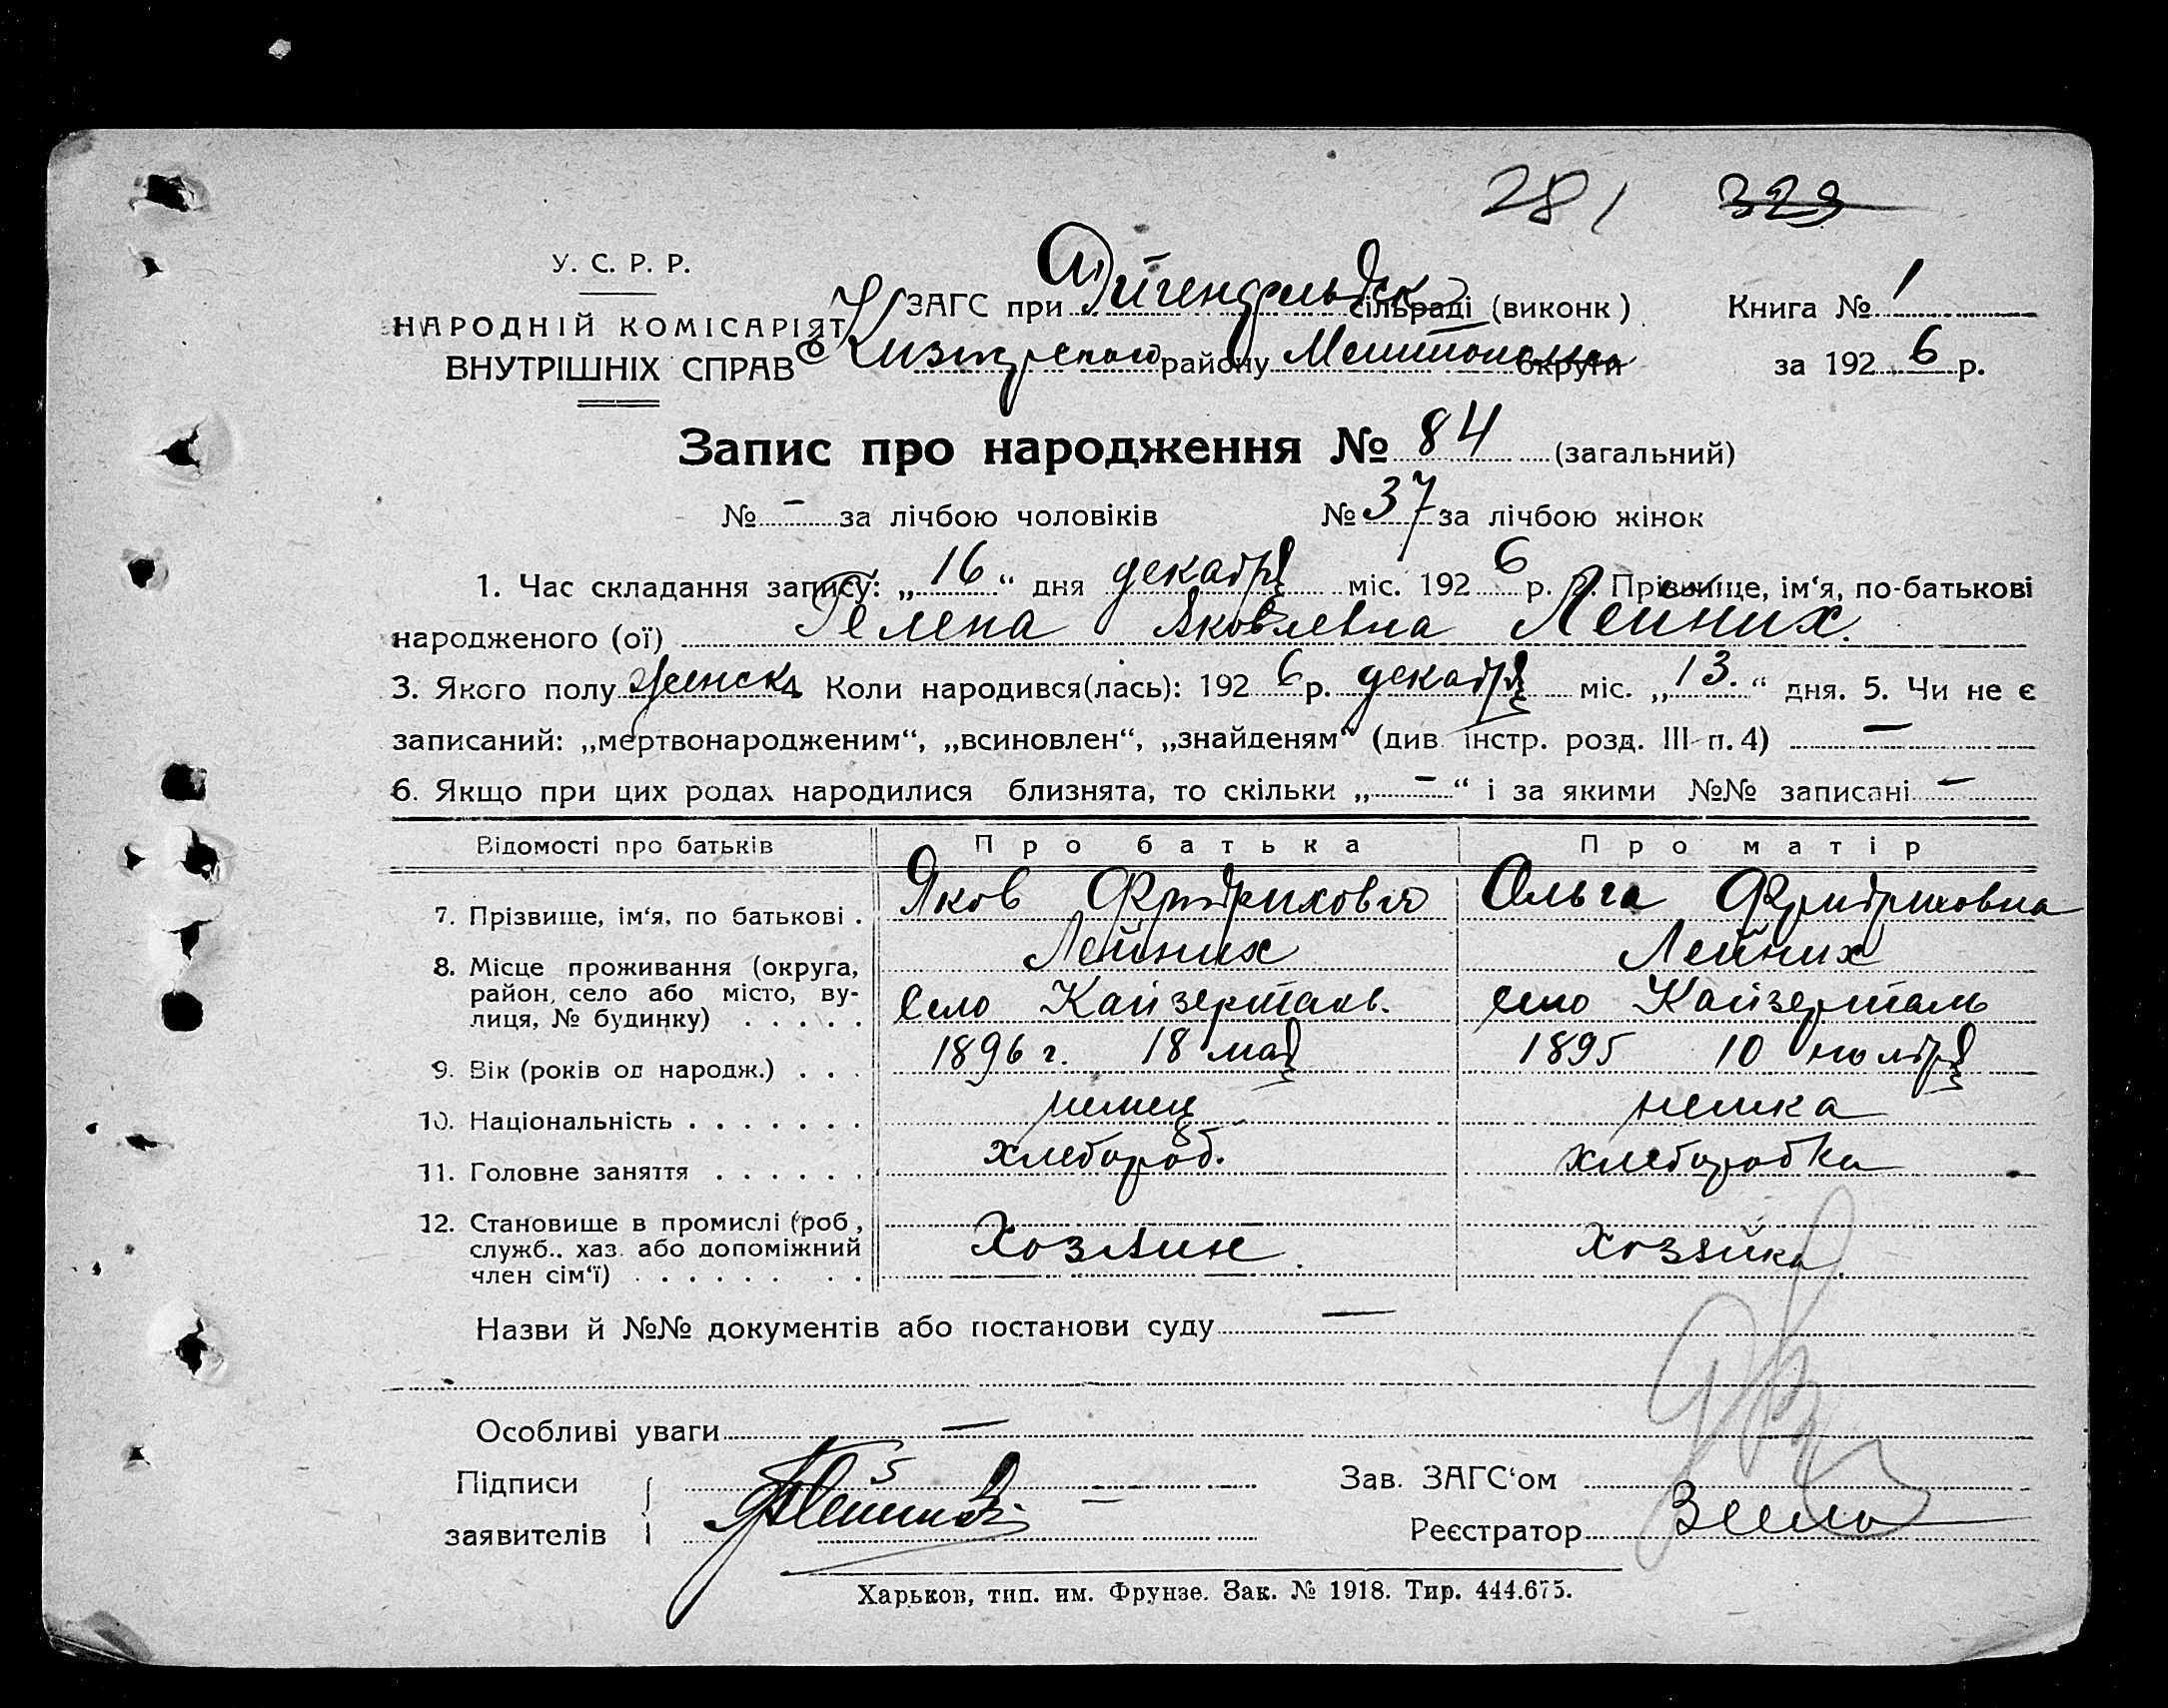 281 329
У. С. Р. Р.
НАРОДНІЙ КОМІСАРІЯТ
ВНУТРІШНІХ СПРАВ
ЗАГС при Эйгенфельдск сільраді (виконк) Книга № 1
районy Мелитопольск округи за 1926 р.
Запис про народження № 84 (загальний)
№ – за лічбою чоловіків № 37 за лічбою жінок
1. Час складання запису: „16“ дня декабря міс. 1926 р. 2. Прізвище, ім‘я, по-батькові
народженого (ої) Гелена Яковлевна Лейних.
3. Якого полу женск 4. Коли народився(лась): 1926 р. декабря міс. „13.“ дня. 5. Чи не є
записаний: „мертвонародженим“, „всиновлен“, „знайденям“ (див. інстр. розд. III п. 4) —
6. Якщо при цих родах народилися близнята, то скільки „–“ і за якими №№ записані –
Відомості про батьків Про батька Про матір
7. Прізвище, ім‘я, по батькові . Яков Фридрихович Ольга Фридриховна
Лейних Лейних
8. Місце проживання (округа, район, село або місто, вулиця, № будинку) . . . . . село Кайзерталь. село Кайзерталь
9. Вік (років од народж.) . . . 1896 г. 18 мая 1895 10 ноября
10. Національність . . . . . . . немец немка
11. Головне заняття . . . . . . хлебороб. хлеборобка
12. Становище в промислі (роб, служб., хаз. або допоміжний член сім‘ї) . . . . . . . . Хозяин. Хозяйка.
Назви й №№ документів або постанови суду —
Особливі уваги —
Підписи Зав. ЗАГС‘ом
заявителів Реєстратор
Харьков, тип. им. Фрунзе. Зак. № 1918. Тир. 444.675.